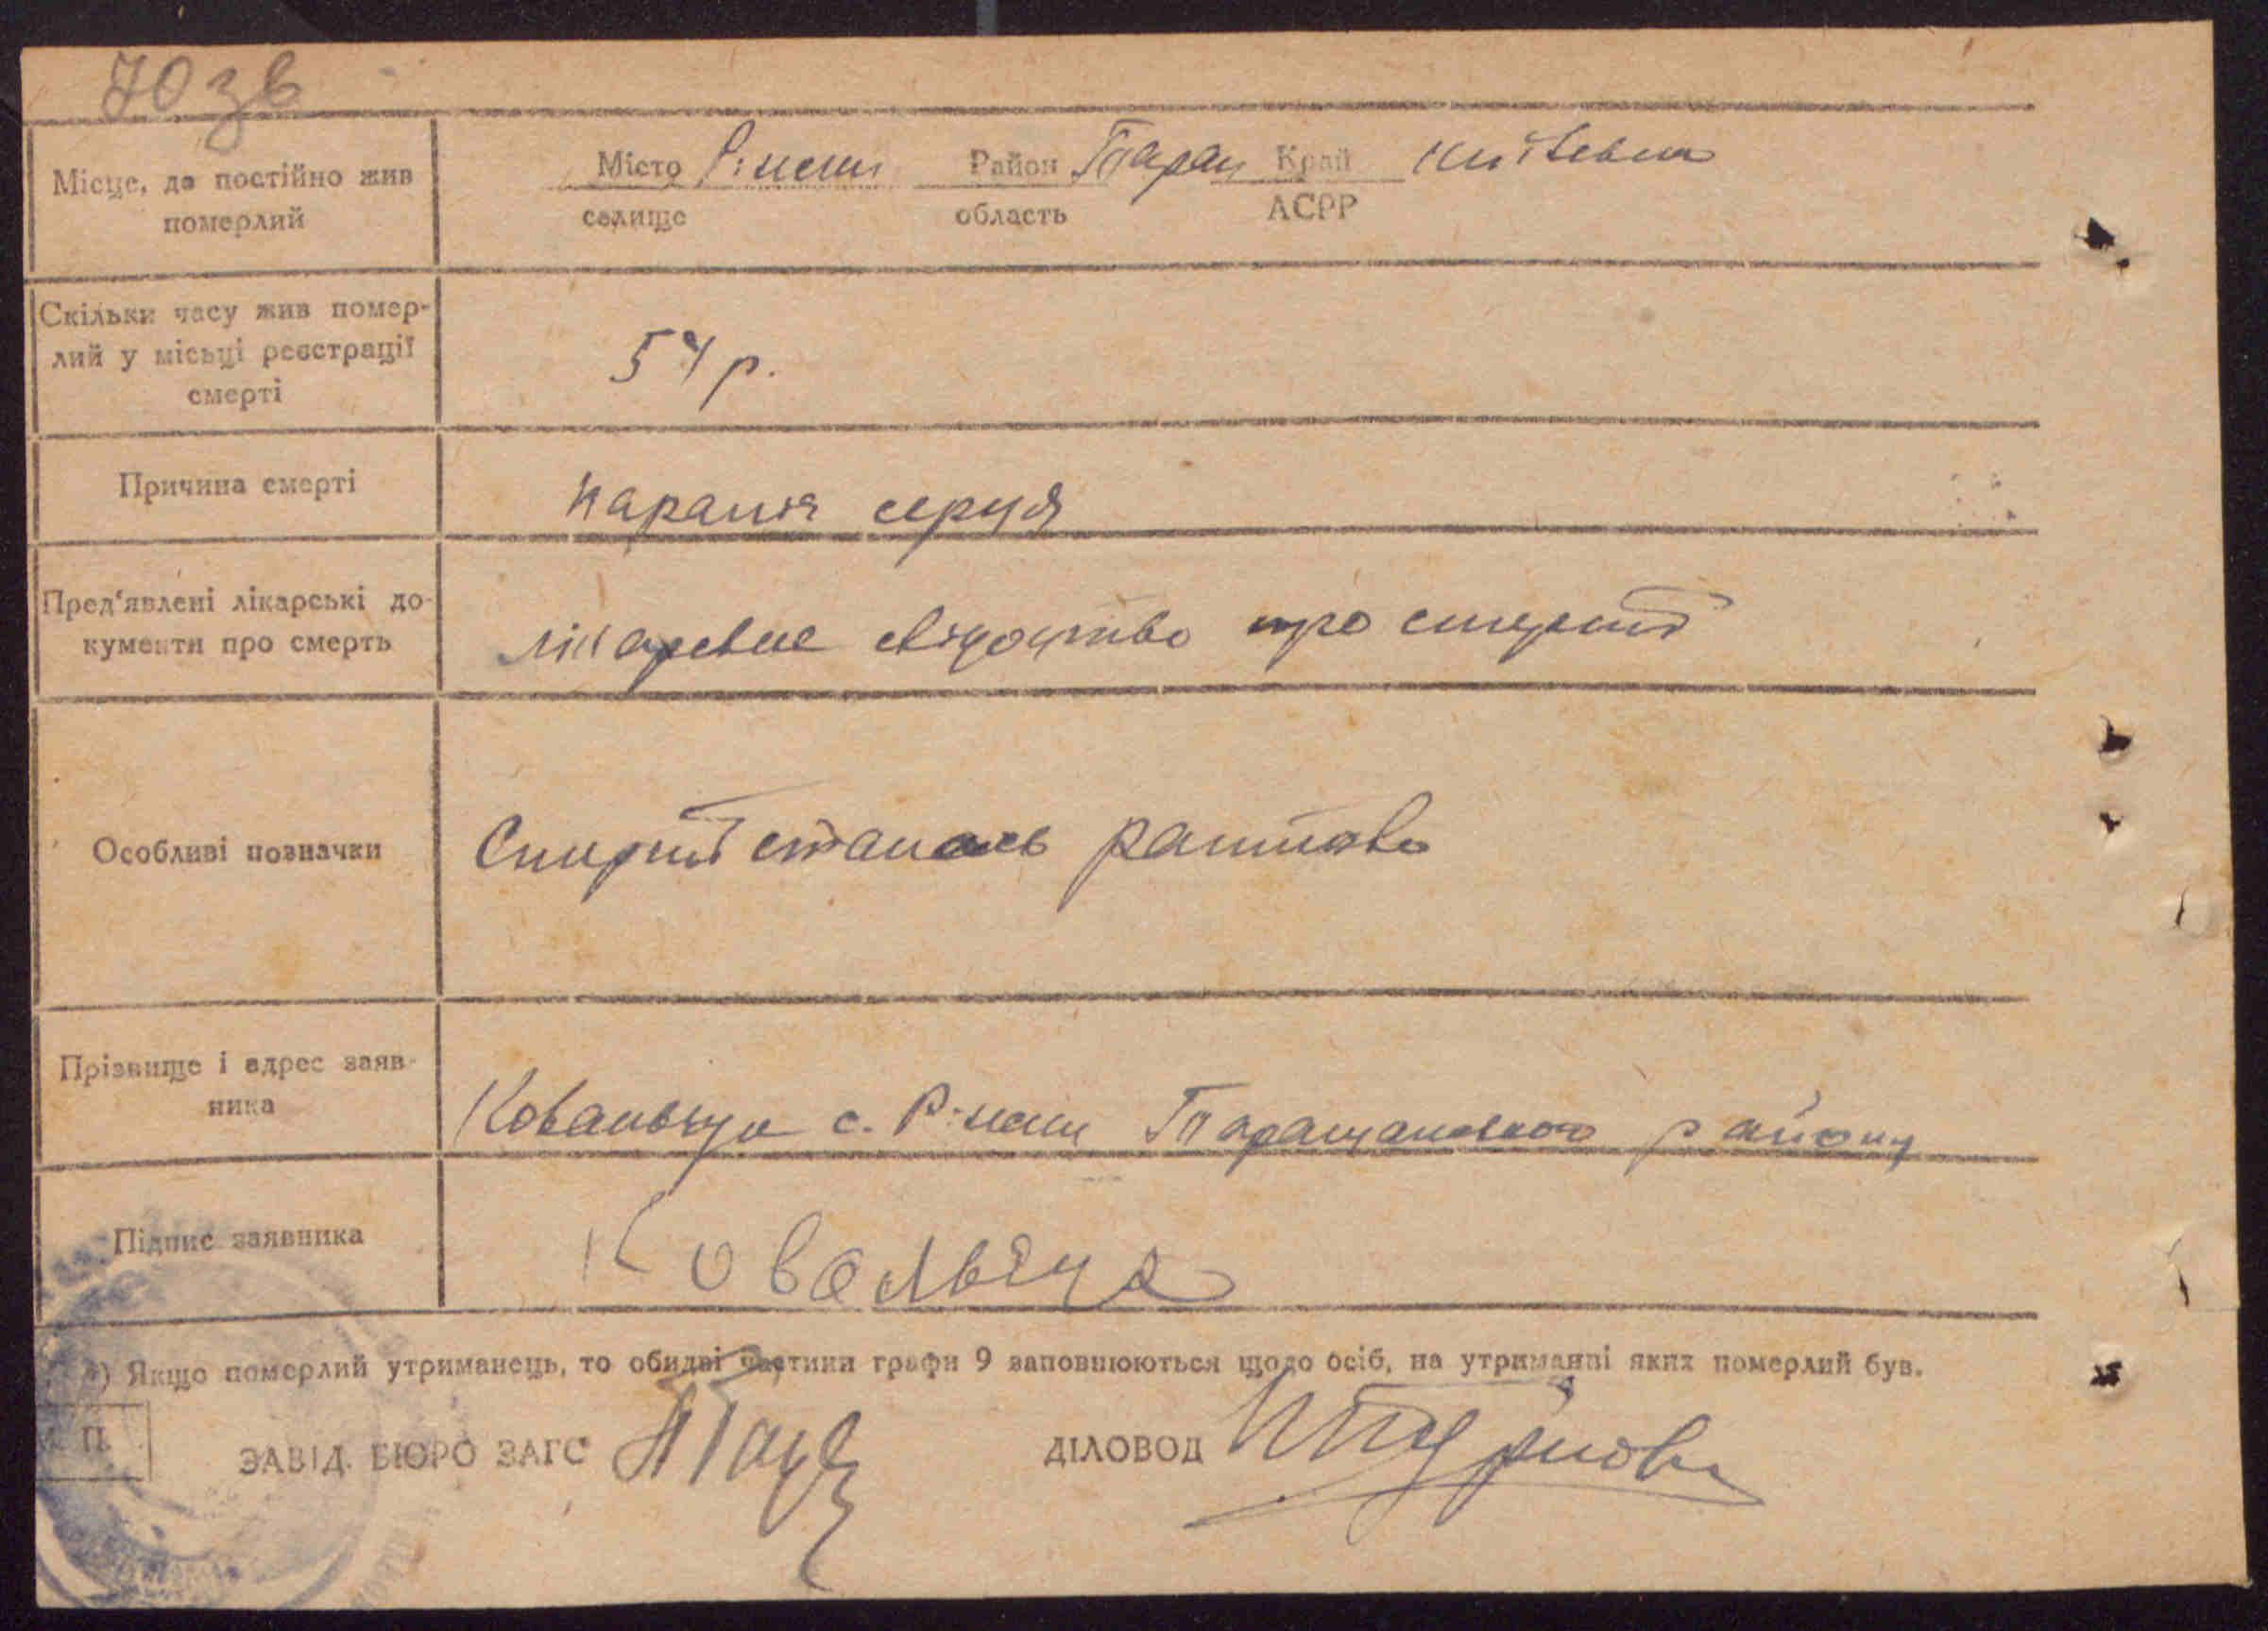 70 зв
Місце, де постійно жив
померлий
Місто Район Таращ Край Київськ
селище область АСРР
Скільки часу жив помер-
лий у місьці реєстрації
смерті
54 р.
Причина смерті
параліч серця
Пред'явлені лікарські до-
кументи про смерть
лікарське свідоцтво про смерть
Особливі позначки
Смерть сталась раптово
Прізвище і адрес заяв-
ника
Ковальчук с. Таращанського району
Підпис заявника
Ковальчук
*) Якщо померлий утриманець, то обидві частини графи 9 заповнюються щодо осіб, на утриманні яких померлий був.
П.
ЗАВІД. БЮРО ЗАГС ДІЛОВОД